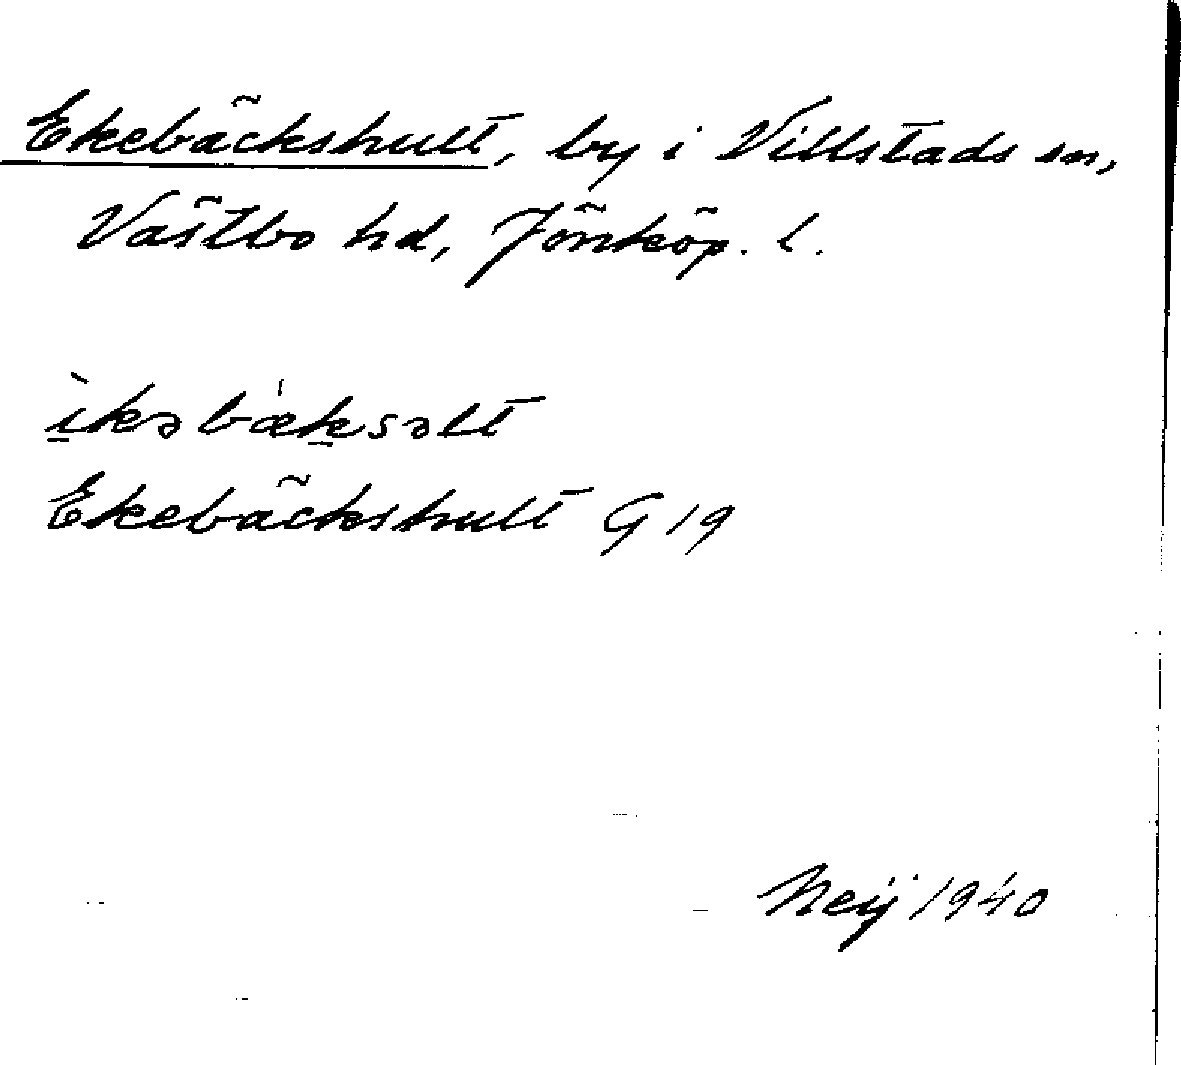 Ekebäckshult, by i Villstads sn,
Västbo hd, Jönköp. l.
ìkəbǽksəlt
Ekebäckshult G 19
Neij 1940